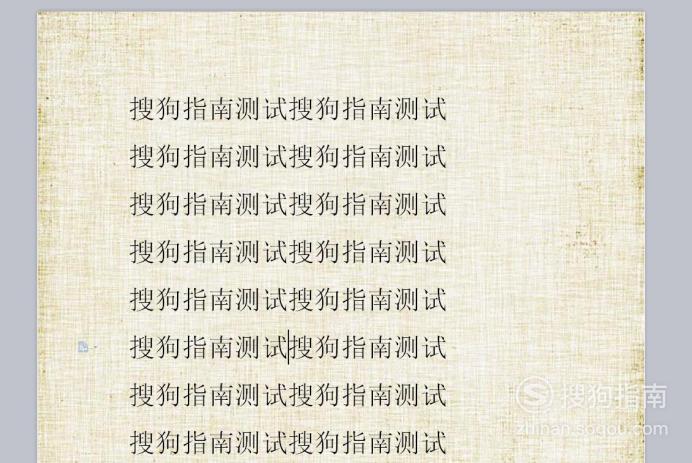 搜狗指南测试搜狗指南测试
搜狗指南测试搜狗指南测试
搜狗指南测试搜狗指南测试
搜狗指南测试搜狗指南测试
搜狗指南测试搜狗指南测试
搜狗指南测试搜狗指南测试
搜狗指南测试搜狗指南测试
搜狗指南测试搜狗指南测试
S搜狗指南
zhinan.sogou.com